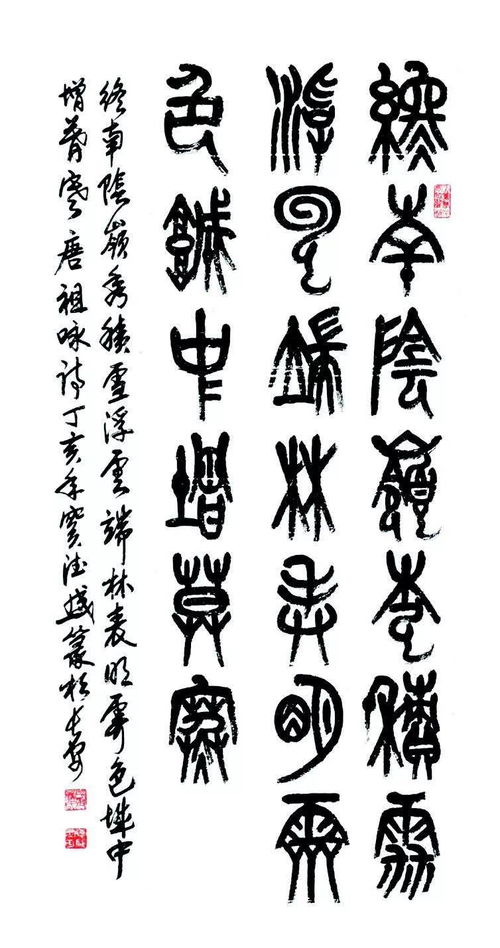 終南陰嶺秀積雪
浮云端林表明霽
色城中增莫寒
終南陰嶺秀積雪浮雲端林表明霽色城中
增暮寒唐祖咏詩丁亥年篆於長安